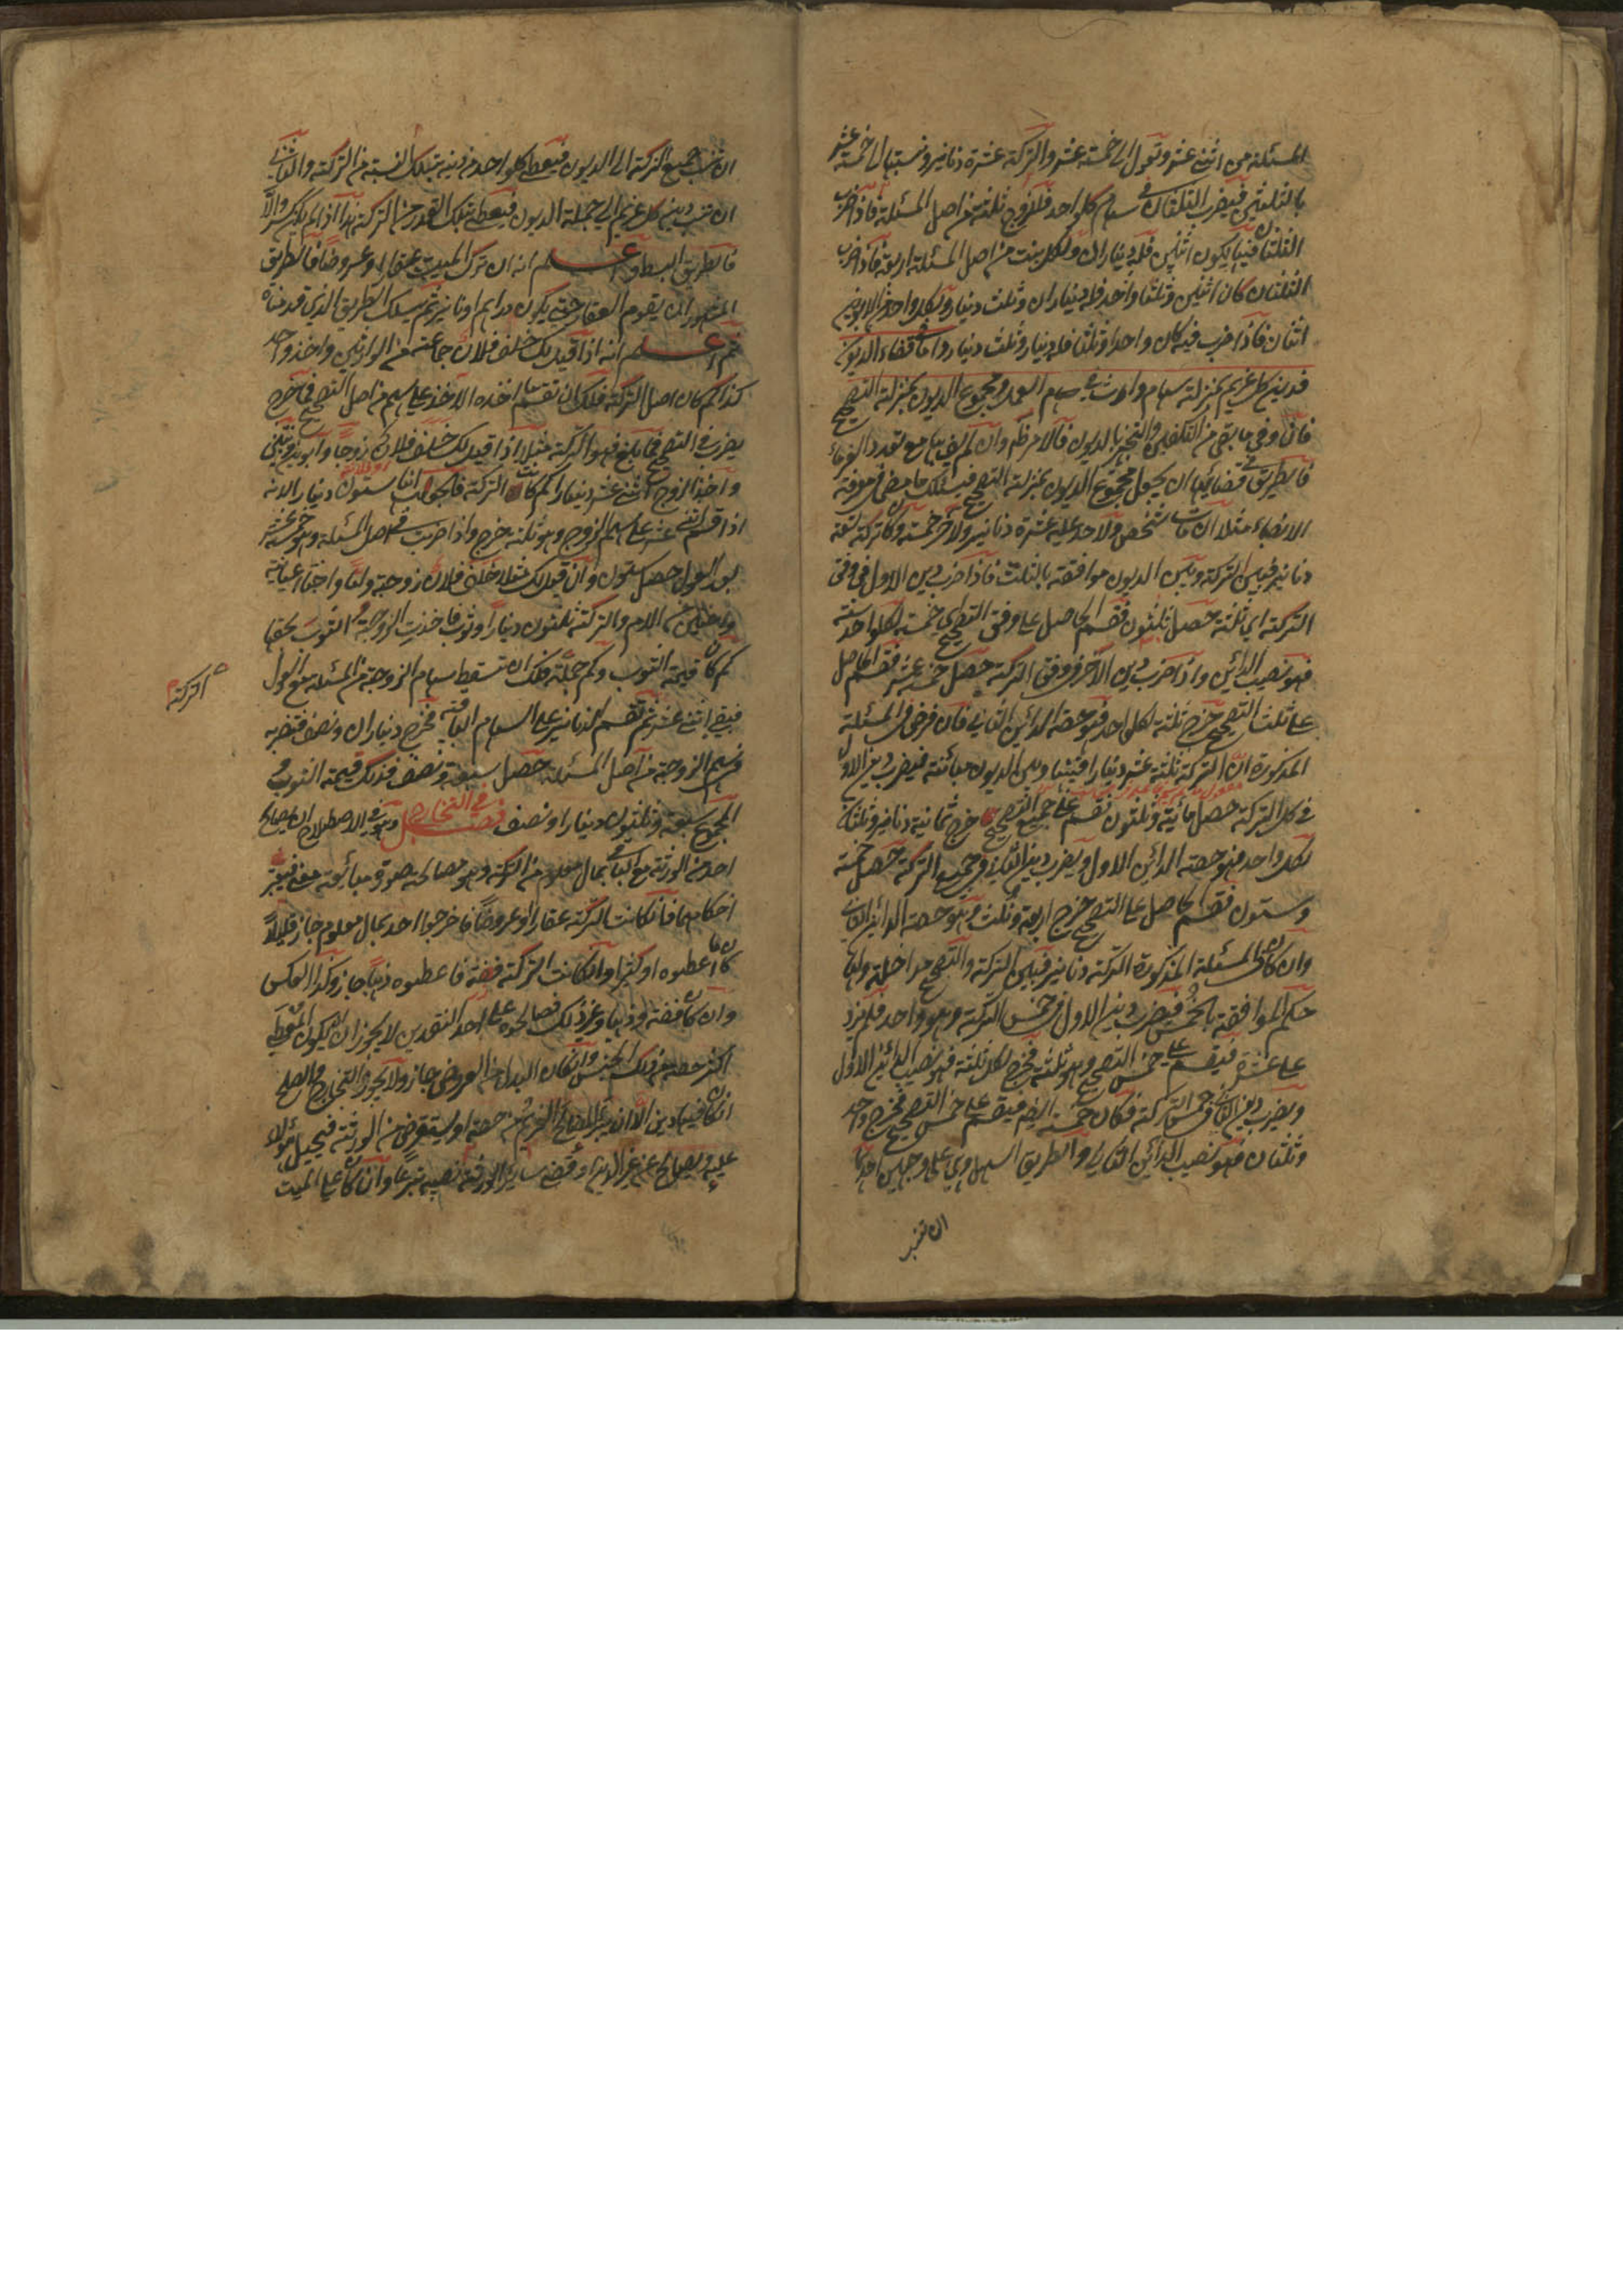 المسئلة من اثنى عشر وتعول الى خمسة عشر والتركة عشرة دنانير ونسبتها الى خمسة عشر
بالثلثين فيضرب الثلثان فى سهام كل واحد فللزوج ثلثة من اصل المسئلة فاذا ضرب
الثلثان فيها يكون اثنين فله ديناران ولكل بنت من اصل المسئلة اربعة فاذا ضرب
الثلثان كان اثنين وثلثا واحد فلها ديناران وثلثا دينار ولكل واحد من الابوين
اثنان فاذا ضرب فيه كان واحدا وثلثا فله دينار وثلث دينار واما فى قضاء الديون
فدين كل غريم بمنزلة سهام وارث فى سهام العمل ومجموع الديون بمنزلة التصحيح
فان وفى ما بقى من التكفين والتجهيز بالديون فالامر ظاهر وان لم يف بها مع تعدد الغرماء
فالطريق فى قضائها ان يجعل مجموع الديون بمنزلة التصحيح فيسلك ما مضى فى معرفة
الانصباء مثلا ان مات شخص ولاحد عليه عشرة دنانير ولآخر خمسة وكان تركته تسعة
دنانير فبين التركة وبين الديون موافقة بالثلث فاذا ضرب دين الاول فى وفق
التركة اى ثلثة حصل ثلثون فقسم الحاصل على وفق التصحيح اى خمسة لكل واحد ستة
فهو نصيب الدائن واذا ضرب دين الآخر فى وفق التركة حصل خمسة عشر فقسم الحاصل
على ثلث التصحيح خرج ثلثة لكل واحد فهو حصة الدائن الثانى فان فرض فى المسئلة
المذكورة ان التركة ثلثة عشر دينارا فبينها وبين الديون مباينة فيضرب دين الاول
فى كل التركة حصل مائة وثلثون تقسم على جميع التصحيح خرج ثمانية دنانير وثلثان
لكل واحد فهو حصة الدائن الاول ويضرب دين الثانى فى جميع التركة حصل خمسة
وستون فقسم الحاصل على التصحيح خرج اربعة وثلث فهو حصة الدائن الثانى
وان كان فى المسئلة المذكورة التركة دنانير فبين التركة والتصحيح مداخلة ولها
حكم الموافقة بالخمس فيضرب دين الاول فى خمس التركة وهو واحد فلم يزد
على عشرة فيقسم على خمس التصحيح وهو ثلثة فخرج لكل ثلثة فهو نصيب الدائن الاول
ويضرب دين الثانى فى خمس التركة فكان خمسة ايضا فيقسم على خمس التصحيح فخرج واحد
وثلثان فهو نصيب الدائن الثانى والطريق السهل هى على وجهين احدهما
ان تنسب
ان تنسب جميع التركة الى الديون فيعطى كل واحد من دينه بتلك النسبة من التركة والثانى
ان تنسب دين كل غريم الى جملة الديون فيعطى بتلك القدر من التركة هذا اذا لم يكن كسر والا
فالطريق البسط واعلم انه ان ترك الميت عقارا وعروضا فالطريق
المشهور ان يقوم العقار حتى يكون دراهم او دنانير ثم يسلك الطريق الذى قدمناه
ثم اعلم انه اذا قيل لك خلف فلان جماعة من الوارثين واخذ واحد
كذا كم كان اصل التركة فلك ان تقسم ما اخذه الآخذ على سهم من اصل التصحيح فما خرج
يضرب فى التصحيح فما بلغ فهو التركة مثلا اذا قيل لك خلف فلان زوجا وابوين وبنتين
واخذ الزوج اثنى عشر دينارا كم كانت التركة فالجواب انها ستون دينارا لانه
اذا قسم اثنى عشر على سهم الزوج وهو ثلثة خرج واذا ضرب فى اصل المسئلة وهو خمسة عشر
بعد العول حصل ستون وان قيل لك مثلا خلف فلان زوجة واما واختا عيانية
واختين من الام والتركة ثلثون دينارا وثوب فاخذت الزوجة الثوب بحقها
كم كان قيمة الثوب وكم جملة فلك ان تسقط سهام الزوجة من المسئلة مع العول
فيبقى اثنى عشر ثم تقسم الدنانير على السهام الباقية فخرج ديناران ونصف فتضربه
فى سهم الزوجة من اصل المسئلة حصل سبعة ونصف فذلك قيمة الثوب و
المجموع سبعة وثلثون دينارا ونصف فصل فى التخارج وهو فى الاصطلاح ان يصالح
احد من الورثة مع الباقى بمال معلوم من التركة وهو مصالحة صورة مبايعة معنى فيعتبر
احكامها فان كانت التركة عقارا او عروضا فاخرجوا احد بمال معلوم جاز قليلا
كان ما اعطوه او كثيرا وان كانت التركة فضة فاعطوه ذهبا جاز وكذا العكس
وان كان فضة وذهبا وغير ذلك فصالحوه على احد النقدين لا يجوز الا ان يكون المعطى
اكثر حصته من ذلك الجنس وان كان البدل من العروض جاز ولا يجوز التخارج والصلح
ان كان فيها دين الا ان يبرأ المصالح الغريم من حصته او يستقرض من الورثة فيحيل هؤلاء
عليه ويصالح عن غير الدين او قضى سائر الورثة نصيبه تبرعا وان كان على الميت
التركة